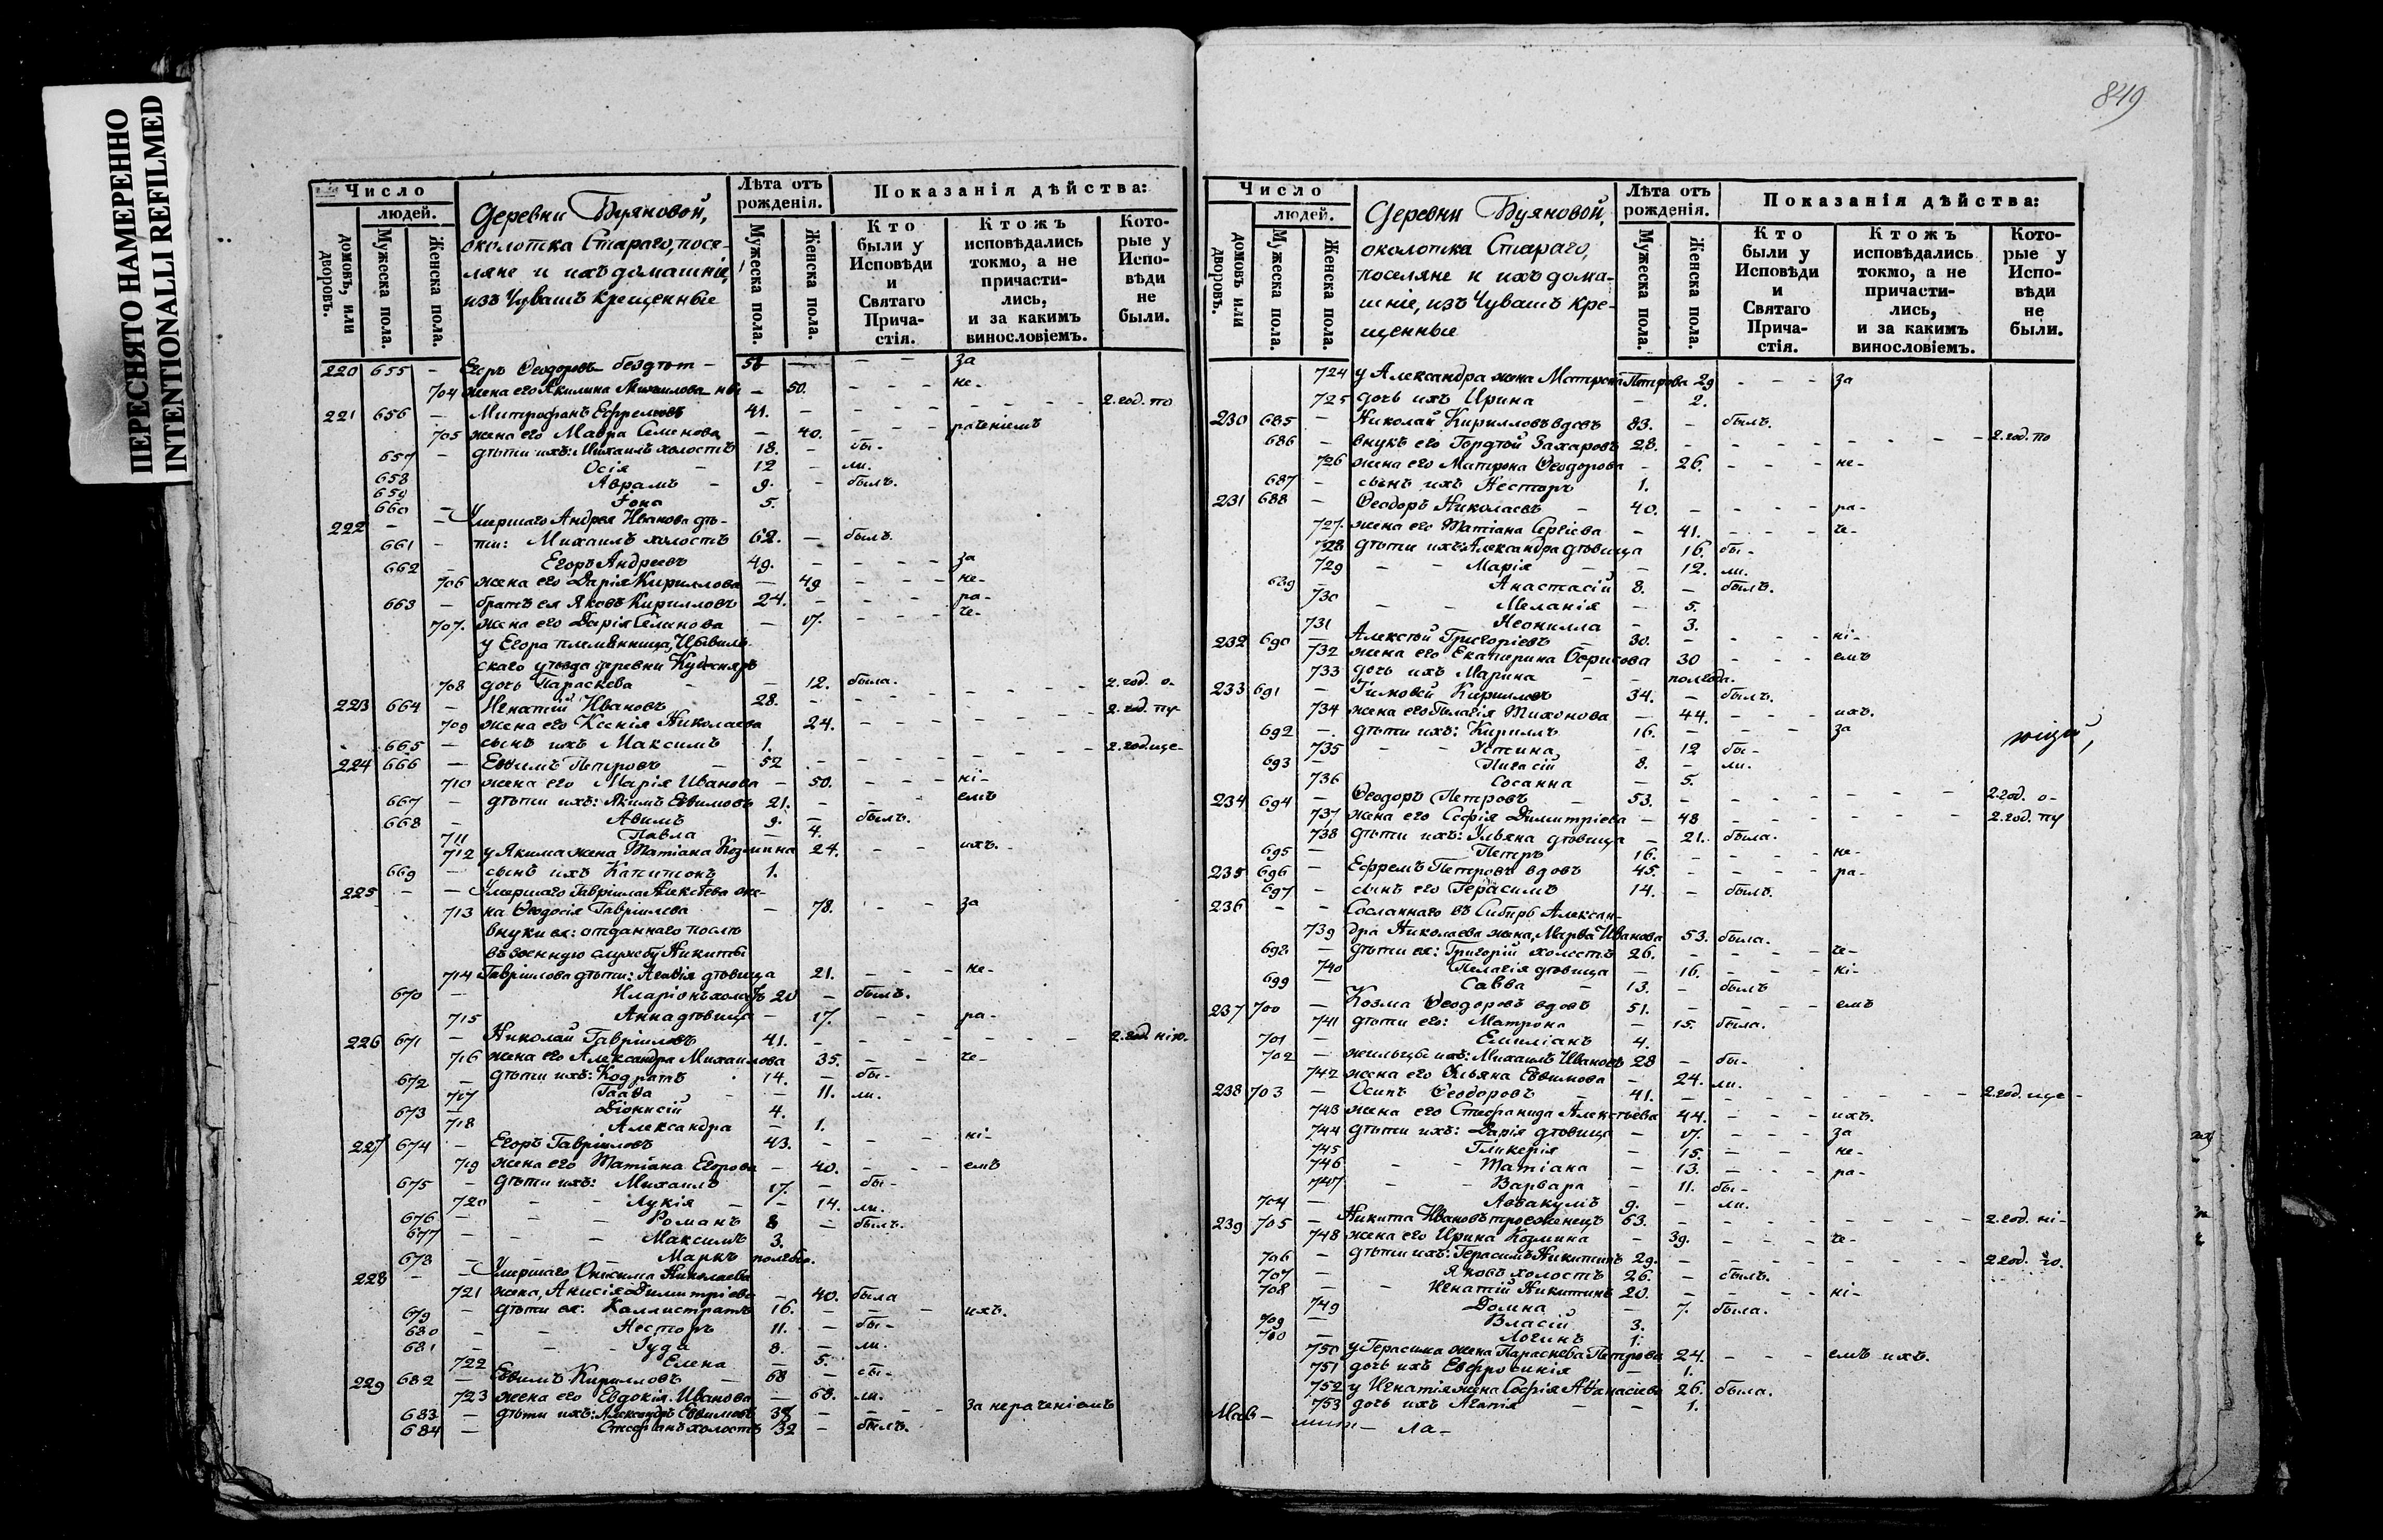 ПЕРЕСНЯТО НАМЕРЕННО
INTENTIONALLI REFILMED
849
Число
людей.
домовъ, или дворовъ.
Мужеска пола.
Женска пола.
Деревни Буяновой,
околотка Стараго, посе-
ляне и ихъ домашніе,
изъ Чувашъ крещенные
Лѣта отъ рожденія.
Мужеска пола.
Женска пола.
Показанія дѣйства:
Кто были у Исповѣди и Святаго Прича- стія.
Ктожъ исповѣдались токмо, а не причасти- лись, и за какимъ винословіемъ.
Кото- рые у Испо- вѣди не были.
220 655 – Егоръ Ѳеодоровъ бездѣт – – – за
704 жена его Акилина Михаилова – 50. – – – не-
221 656 – Митрофанъ Ефремовъ 41. – – – 2. год. по
705 жена его Мавра Семенова – 40. – – – раченіемъ
657 – дѣти ихъ: Михаилъ холостъ 18. – бы-
658 Осія – 12 – ли.
659 Аврамъ – 9. – былъ.
660 – Іона 5.
222 – – Умершаго Андрея Иванова дѣ-
661 – ти: Михаилъ холостъ 62. – былъ.
662 – Егоръ Андреевъ 49. – – – за
706 жена его Дарія Кириллова – 49 – – – не-
663 – братъ ея Яковъ Кирилловъ 24. – – – ра-
707. жена его Дарія – 17. – – – че-
у Егора племянница, Цывиль-
скаго уѣзда деревни
708 дочь Параскева – – 12. была.
223 664 – Игнатій Ивановъ 28. – – – 2. год. о-
709 жена его Ксенія Николаева 24. – – – 2. год. пу-
665 – сынъ ихъ Максимъ 1.
224 666 – Евѳимъ Петровъ – 52 – – – 2. год. ще-
710 жена его Марія Иванова – 50. – – – ні-
667 – дѣти ихъ: Якимъ Евѳимовъ 21. – – – емъ
668 – Авимъ 9. – былъ.
711 Павла – 4.
712 у Якима жена Татіана Козмина 24. – – – ихъ.
669 – сынъ ихъ Капитонъ 1.
225 – – Умершаго Гавріила Алексѣева же-
713 на Ѳеодосія Гавріилова – 78. – – за
внуки ея: отданнаго
въ военную службу Никиты
714 Гавріилова дѣти: Агаѳія дѣвица 21. – – – не-
670 – Иларіонъ холостъ 20 – былъ.
715 Анна дѣвица – 17. – – ра-
226 671 – Николай Гавріиловъ 41. – – – 2. год. нію.
716 жена его Александра Михаилова 35. – – че-
672 – дѣти ихъ: Кодратъ 14. – бы-
717 – – 11. ли.
673 – Діонисій 4.
718 Александра – 1.
227 674 – Егоръ Гавріиловъ 43. – – – ні-
719 жена его Татіана Егорова – 40. – – – емъ
675 – дѣти ихъ: Михаилъ 17. – бы-
720 – – Лукія – – 14. ли.
676 – – – Романъ 8 – былъ.
677 – – – Максимъ 3.
678 – – – Маркъ полгода.
228 – – Умершаго Онисима Николаева
721 жена, Анисія Димитріева – 40. была
679 – дѣти ея: Каллистратъ 16. – – – ихъ.
680 – – Несторъ 11. – бы-
681 – – – Іуда 8. – ли.
722 Елена – 5.
229 682 – Евѳимъ Кирилловъ – 68 – бы-
723 жена его Евдокія Иванова – 68. ли.
683 – дѣти ихъ: Александръ Евѳимовъ – – – за нераченіемъ
684 – Стефанъ холостъ 32 – былъ.
Число
людей.
домовъ или дворовъ.
Мужеска пола.
Женска пола.
Деревни Буяновой,
околотка Стараго,
поселяне и ихъ дома-
шніе, изъ Чувашъ кре-
щенные
Лѣта отъ рожденія.
Мужеска пола.
Женска пола.
Показанія дѣйства:
Кто были у Исповѣди и Святаго Прича- стія.
Ктожъ исповѣдались токмо, а не причасти- лись, и за какимъ винословіемъ.
Кото- рые у Испо- вѣди не были.
724 у Александра жена Матрона Петрова 29 – – – за
725 дочь ихъ Ирина – 2.
230 685 – Николай Кирилловъ вдовъ 83. – былъ.
686 – внукъ его Гордѣй Захаровъ 28. – – – 2. год. по
726 жена его Матрона Ѳеодорова – 26. – – – не-
687 – сынъ ихъ Несторъ 1.
231 688 – Ѳеодоръ Николаевъ – 40. – – – ра-
727. жена его Татіана Сергіева – 41. – – – че-
728 дѣти ихъ: Александра дѣвица 16. бы-
729 – – Марія – – 12. ли.
689 Анастасій 8. – былъ.
730 – – Меланія – 5.
731 Неонилла – 3.
232 690 – Алексѣй Григоріевъ 30. – – – ні-
732 жена его Екатерина Борисова 30 – – – емъ
733 дочь ихъ Марина – – полгода.
233 691 – Тимоѳей Кирилловъ 34. – былъ.
734 жена его Пелагія Тихонова – 44. – – – ихъ.
692 – дѣти ихъ: Кириллъ 16. – – – за
735 – – Устина – 12 бы-
693 – Пигасій 8. – ли.
736 Сосанна – 5.
234 694 – Ѳеодоръ Петровъ – 53. – – – 2. год. о-
737 жена его Софія Димитріева – 48 – – – 2. год. пу
738 дѣти ихъ: Ульяна дѣвица – 21. была.
695 – Петръ 16. – – – не-
235 696 – Ефремъ Петровъ вдовъ 45. – – – ра-
697 – сынъ его Герасимъ 14. – былъ.
236 – – Сосланнаго въ Сибирь Алексан-
739 дра Николаева жена, Марѳа Иванова 53. была.
698 – дѣти ея: Григорій холостъ 26. – – – че-
740 Пелагія дѣвица – 16. – – – ні-
699 – Савва – 13. – былъ
237 700 – Козма Ѳеодоровъ вдовъ 51. – – – емъ
741 дѣти его: Матрона – 15. была.
701 – Емиліанъ 4.
702 – жильцы ихъ: Михаилъ Ивановъ 28 – бы-
742 жена его Ульяна Евѳимова – 24. ли.
238 703 – Осипъ Ѳеодоровъ – 41. – – – 2. год. ще-
743 жена его Стефанида Алексѣева 44. – – – ихъ.
744 дѣти ихъ: Дарія дѣвица – 17. – – – за
745 Гликерія – 15. – – – не-
746 – – Татіана – 13. – – – ра-
747 – – Варвара – 11. бы-
704 – Аввакумъ 9. – ли.
239 705 – Никита Ивановъ троеженецъ 63. – – – 2. год. ні-
748 жена его Ирина Козмина – 39. – – – че-
706 – дѣти ихъ: Герасимъ Никитинъ 29. – – – 2 год. ю.
707 – Яковъ холостъ 26. – былъ.
708 – – Игнатій Никитинъ 20. – – – ні-
749 Домна – 7. была.
709 – Власій 3.
710 – Логинъ 1.
750 у Герасима жена Параскева Петрова 24. – – – емъ ихъ.
751 дочь ихъ Евфросинія – 1.
752 у Игнатія жена Софія Аѳанасіева 26. была.
753 дочь ихъ Агаѳія – – 1.
– ла-